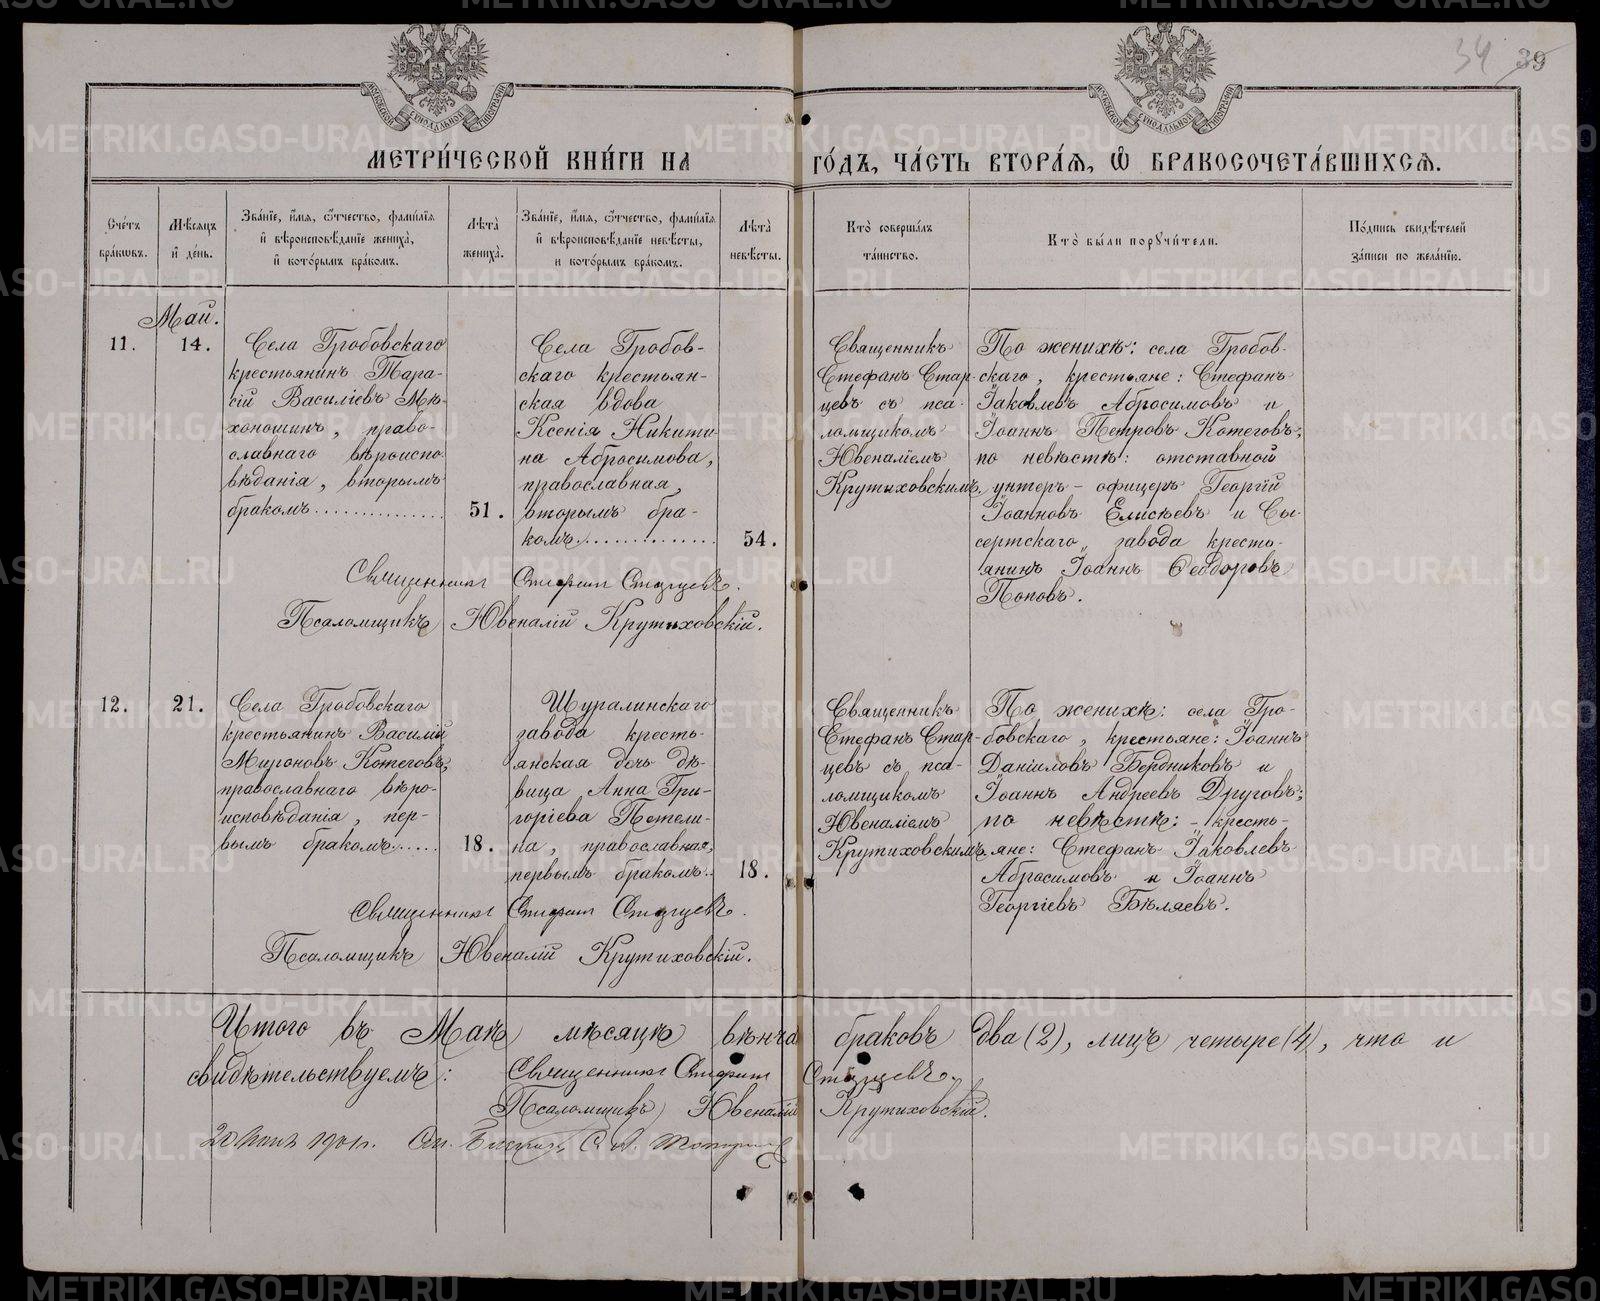 34 39
МЕТРИ́ЧЕСКОЙ КНИ́ГИ НА ГО́ДЪ, ЧА́СТЬ ВТОРА́Я, Ѡ БРАКОСОЧЕТА́ВШИХСЯ.
Сче́тъ бра́кѡвъ.
Мѣ́сяцъ и҆ де́нь.
Зва́нїе, и҆́мя, ѻ҆́тчество, фами́лїя
и҆ вѣроисповѣ́данїе жениха̀,
и҆ кото́рымъ бра́комъ.
Лѣ́та жениха̀.
Зва́нїе, и҆́мя, ѻ҆́тчество, фами́лїя
и҆ вѣроисповѣ́данїе невѣ́сты,
и кото́рымъ бра́комъ.
Лѣ́та невѣ́сты.
Кто̀ соверша́лъ та́инство.
Кто̀ бы́ли порꙋчи́тели.
По́дпись свидѣ́телей
за́писи по жела́нїю.
Май.
11.
14.
Села Гробовскаго
крестьянинъ Тара-
сій Василіевъ Мѣ-
хоношинъ, право-
славнаго вѣроиспо-
вѣданія, вторымъ
бракомъ
51.
Села Гробов-
скаго крестьян-
ская вдова
Ксенія Никити-
на Абросимова,
православная,
вторымъ бра-
комъ
54.
Священникъ
Стефанъ Стар-
цевъ съ пса-
ломщикомъ
Ювеналіемъ
Крутиховскимъ.
По женихѣ: села Гробов-
скаго, крестьяне: Стефанъ
Іаковлевъ Абросимовъ и
Іоаннъ Петровъ Котеговъ;
по невѣстѣ: отставной
унтеръ-офицеръ Георгій
Іоанновъ Елисѣевъ и Сы-
сертскаго завода кресть-
янинъ Іоаннъ Ѳеодоровъ
Поповъ.
Священникъ Стефанъ Старцевъ.
Псаломщикъ Ювеналій Крутиховскій.
12.
21.
Села Гробовскаго
крестьянинъ Василій
Мироновъ Котеговъ,
православнаго вѣро-
исповѣданія, пер-
вымъ бракомъ
18.
Шуралинскаго
завода кресть-
янская дочь дѣ-
вица Анна Гри-
горіева Петели-
на, православная,
первымъ бракомъ
18.
Священникъ
Стефанъ Стар-
цевъ съ пса-
ломщикомъ
Ювеналіемъ
Крутиховскимъ
По женихѣ: села Гро-
бовскаго, крестьяне: Іоаннъ
Даніиловъ Бердниковъ и
Іоаннъ Андреевъ Друговъ;
по невѣстѣ: - кресть-
яне: Стефанъ Іаковлевъ
Абросимовъ и Іоаннъ
Георгіевъ Бѣляевъ.
Священникъ Стефанъ Старцевъ.
Псаломщикъ Ювеналій Крутиховскій.
Итого въ Маѣ мѣсяцѣ вѣнча браковъ два (2), лицъ четыре (4), что и
свидѣтельствуемъ: Священникъ Стефанъ Старцевъ.
Псаломщикъ Ювеналій Крутиховскій.
1901 г.
METRIKI.GASO-URAL.RU